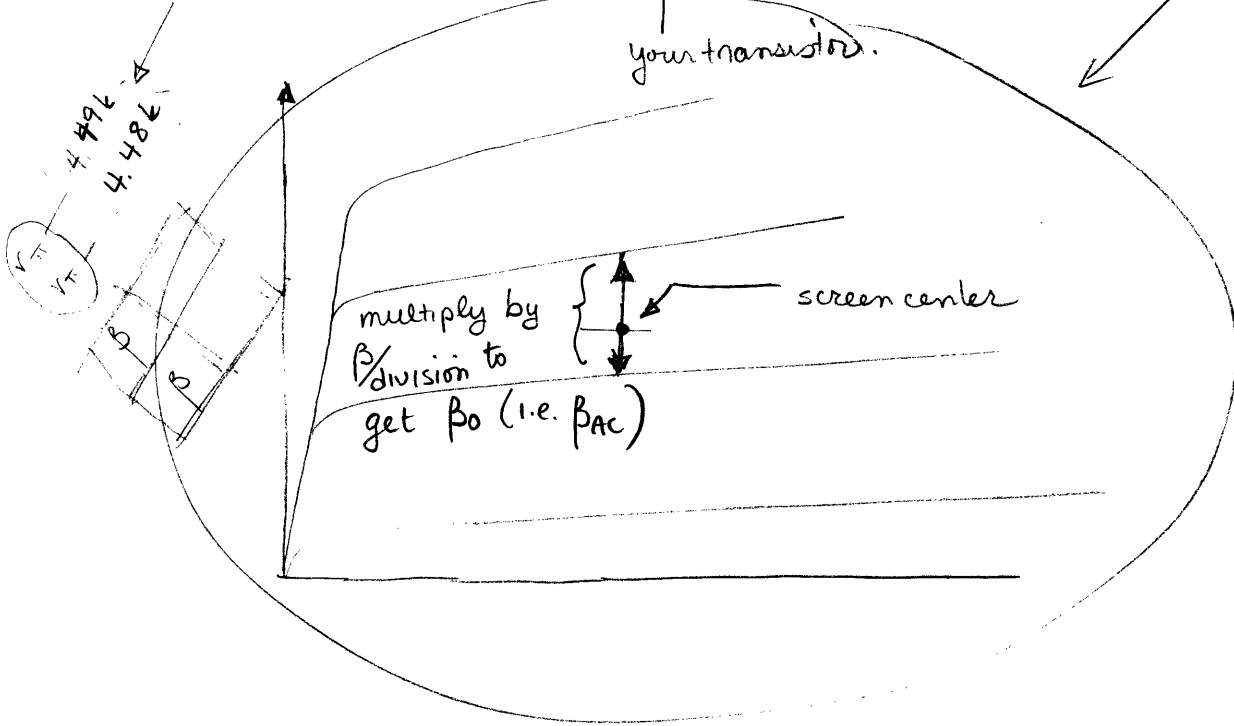 your transistor.
4.49k
4.48k
rπ
rπ
β
β
multiply by
β/division to
get β₀ (i.e. βAC)
screen center